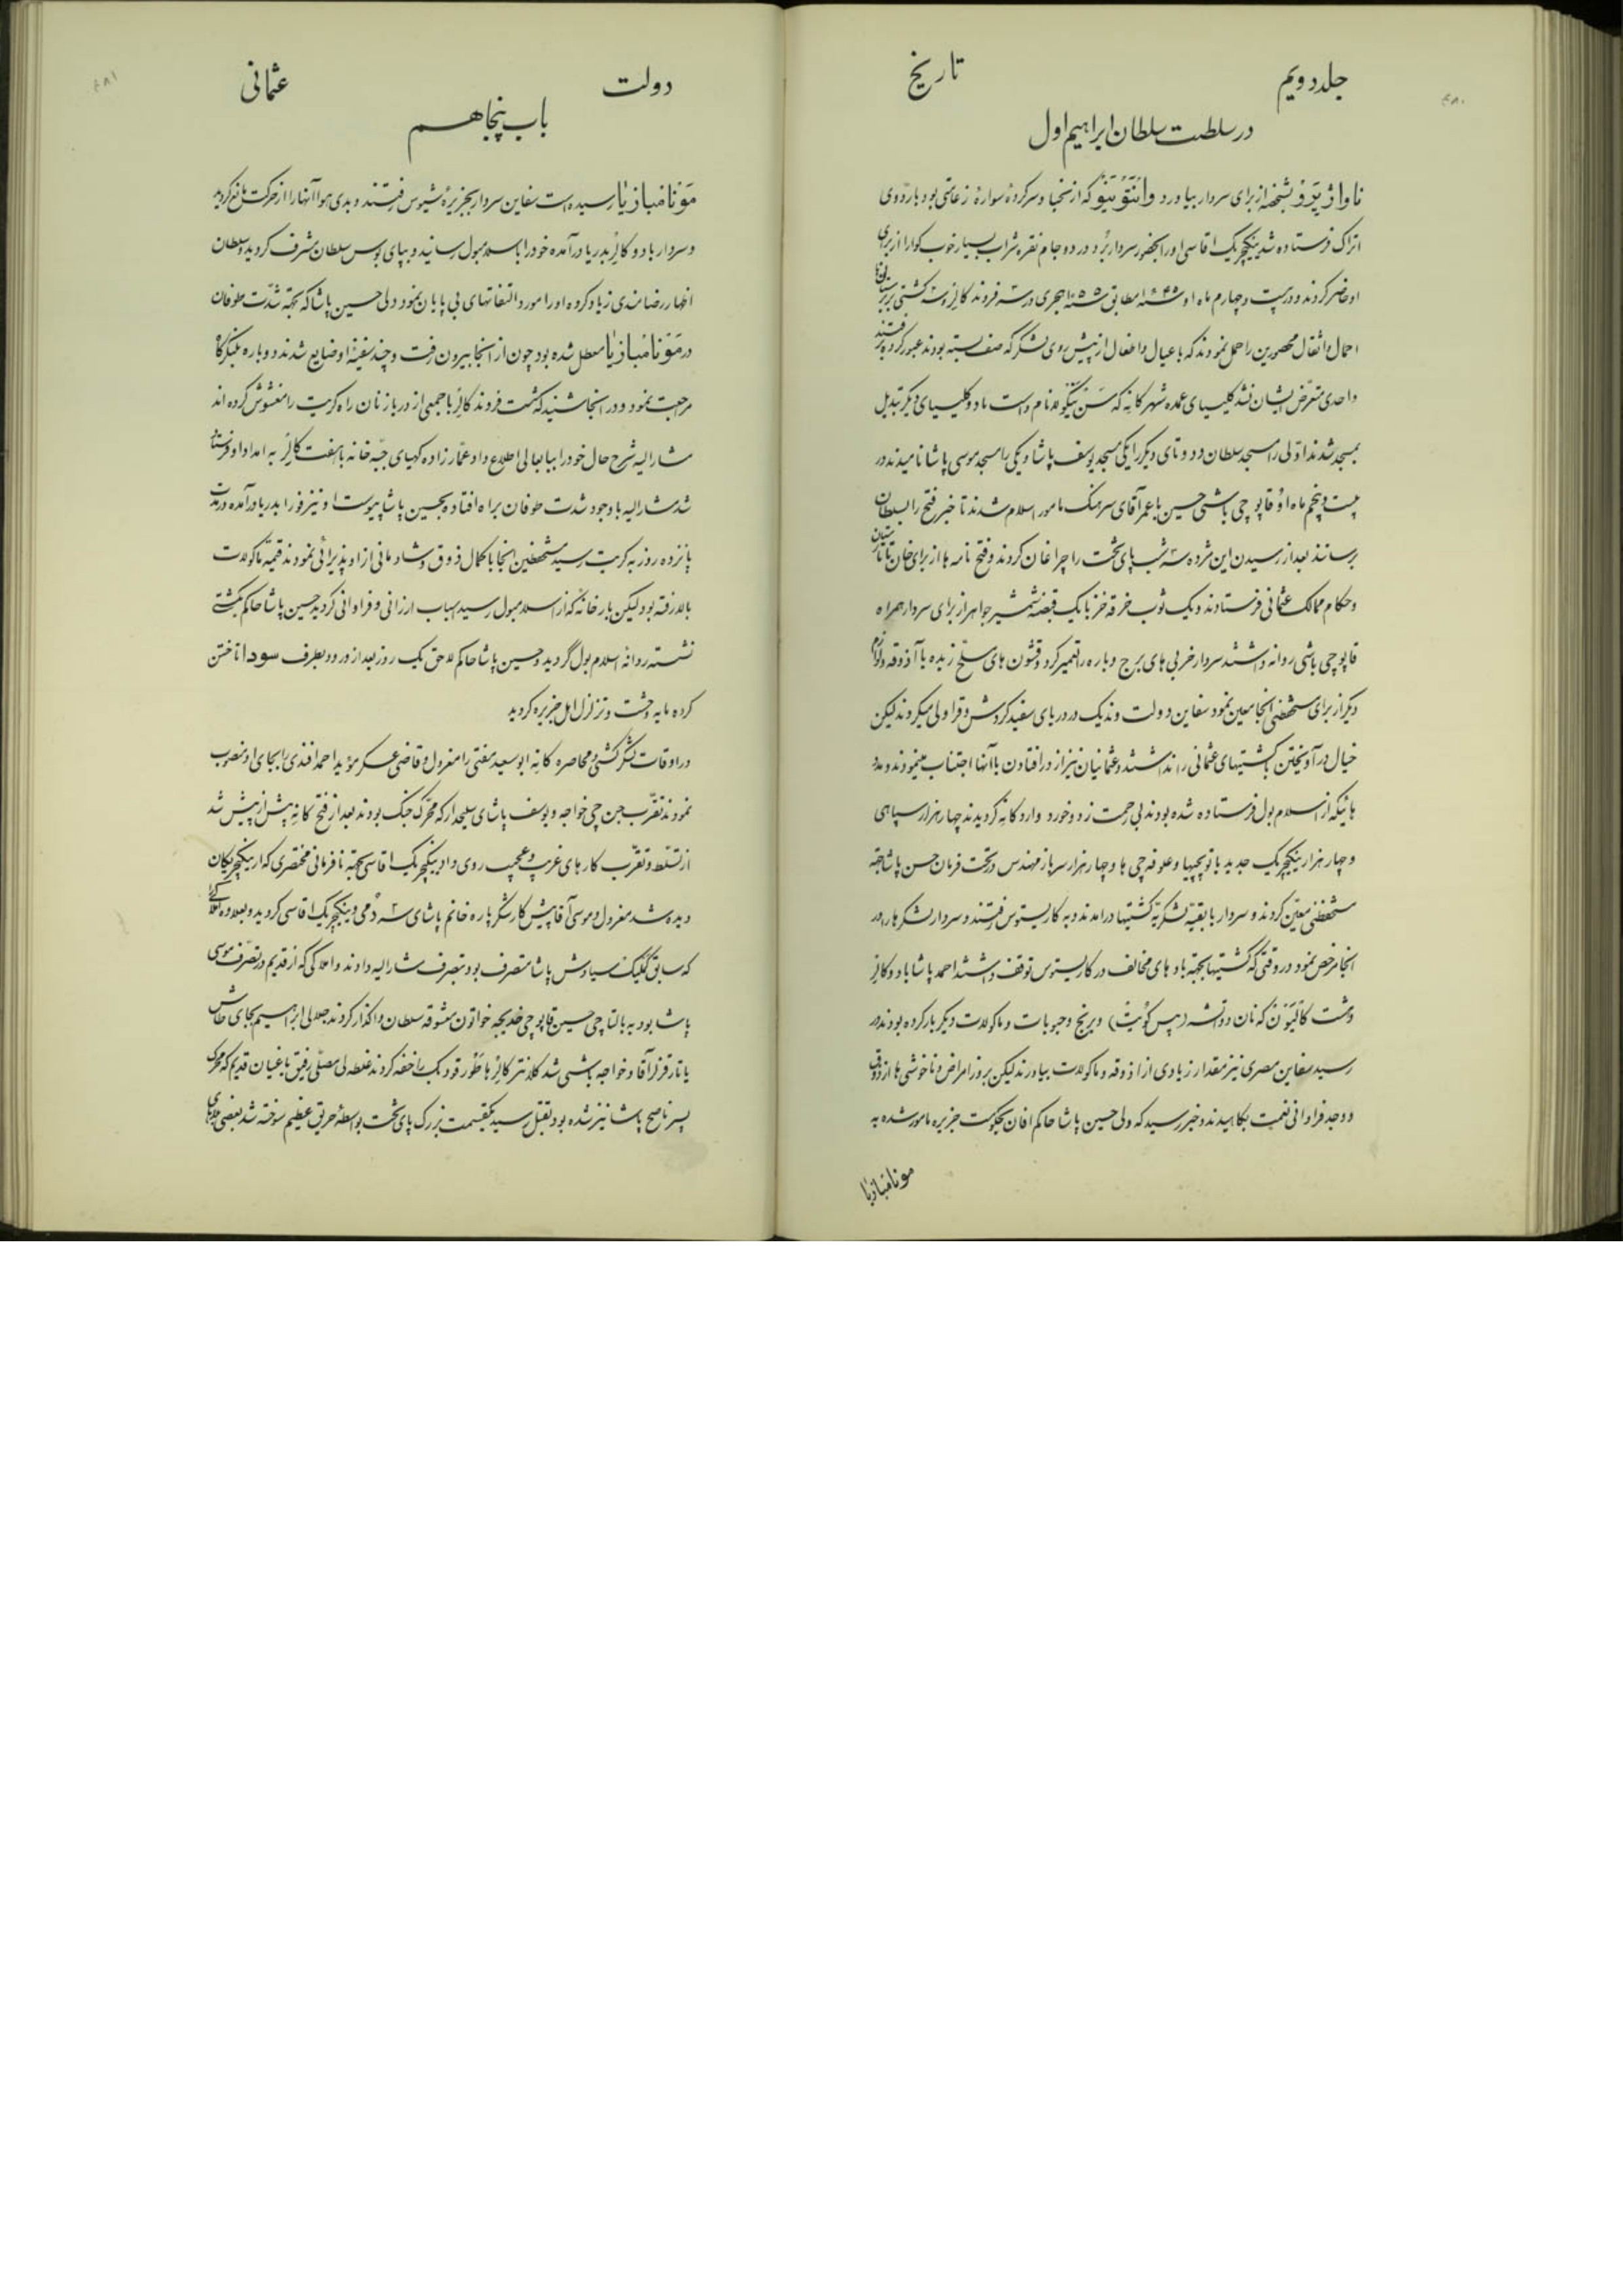 جلد دویم
تاریخ
۴۸۰
در سلطنت سلطان ابراهیم اول
از برای سردار بیاورد و که از نجبا و سرکردهٔ سوارهٔ زعامتی بود باردوی
اتراک فرستاده شد ینکچریک اقاسی اورا بحضور سردار برد در دو جام نقره شراب بسیار خوب کوارا از برای
او حاضر کردند و در بیست و چهارم ماه اوت ۱۶۴۵ مطابق ۱۰۵۵ هجری در سه فروند کالر و سه کشتی
احمال و اثقال محصورین را حمل نمودند که با عیال و اطفال از پیش روی لشکر که صف بسته بودند عبور کرده رفتند
واحدی متعرض ایشان نشد کلیسای عمده شهر کانه که سن نیکولا نام داشت با دو کلیسیای دیکر تبدیل
بمسجد شدند اولی را مسجد سلطان و دو تای دیکر را یکی مسجد یوسف پاشا و یکی را مسجد موسی پاشا نامیدند در
بیست و پنجم ماه اوت قاپوچی باشی حسین با عمر آقای سرهنک مامور اسلامبول شدند تا خبر فتح را بسلطان
برسانند بعد از رسیدن این مژده سه شب پای تخت را چراغان کردند و فتح نامه ها از برای خان تاتارستان
و حکام ممالک عثمانی فرستادند و یک ثوب خرقه خز با یک قبضه شمشیر جواهر از برای سردار همراه
قاپوچی باشی روانه داشتند سردار خرابی های برج و باره را تعمیر کرد و قشون های مسلح زبده با آذوقه و لوازم
دیکر از برای مستحفظی آنجا معین نمود سفاین دولت وندیک در دریای سفید کردش و قراولی میکردند لیکن
خیال در آویختن با کشتیهای عثمانی را نداشتند و عثمانیان نیز از در افتادن با آنها اجتناب مینمودند و مدد
هائیکه از اسلامبول فرستاده شده بودند بی زحمت زد و خورد وارد کانه کردیدند چهار هزار سپاهی
و چهار هزار ینکچریک جدید با توپچیها و علوفه چی ها و چهار هزار سرباز مهندس در تحت فرمان حسن پاشا بجهة
مستحفظی معین کردند و سردار با بقیه لشکر به کشتیها درآمدند و به کاریستوس رفتند و سردار لشکرها را در
آنجا مرخص نمود در وقتی که کشتیها بجهة باد های مخالف در کاریستوس توقف داشتند احمد پاشا با دو کالر
و هشت کالیون که نان دو آتشه (بیس کویت) و برنج و حبوبات و ماکولات دیکر بار کرده بودند در
رسید سفاین مصری نیز مقدار زیادی از آذوقه و ماکولات بیاوردند لیکن بروز امراض و ناخوشی ها از ذوق
و وجد فراوانی نعمت بکاهیدند و خبر رسید که ولی حسین پاشا حاکم افان بحکومت جزیره مامور شده به
دولت
عثمانی
۴۸۱
باب پنجاهم
رسیده است سفاین سردار بجزیرهٔ شیوس رفتند و بدی هوا آنها را از حرکت مانع کردید
و سردار با دو کالر بدریا درآمده خود را باسلامبول رسانید و بپای بوس سلطان مشرف کردید و سلطان
اظهار رضامندی زیاد کرده او را مورد التفاتهای بی پایان نمود ولی حسین پاشا که بجهة شدت طوفان
در معطل شده بود چون از آنجا بیرون رفت و چند سفینهٔ او ضایع شدند دوباره بلنکرکاه
مراجعت نمود و در آنجا شنید که هشت فروند کالر با جمعی از دریا زنان راه کریت را مغشوش کرده اند
مشارالیه شرح حال خود را ببابعالی اطلاع داد عمارزاده کهیای جبه خانه با هفت کالر به امداد او فرستاده
شد مشارالیه با وجود شدت طوفان براه افتاده بحسین پاشا پیوست او نیز فورا بدریا درآمده در مدت
پانزده روز به کریت رسید مستحفظین آنجا با کمال ذوق و شادمانی از او پذیرائی نمودند قیمة ماکولات
بالا رفته بود لیکن بارخانه که از اسلامبول رسید اسباب ارزانی و فراوانی کردید حسین پاشا حاکم بکشتی
نشسته روانهٔ اسلامبول گردید و حسین پاشا حاکم لاحق یک روز بعد از ورود بطرف سودا تاختن
کرده مایه وحشت و تزلزل اهل جزیره کردید
در اوقات لشکر کشی و محاصره کانه ابو سعید مفتی را معزول و قاضی عسکر مؤید احمد افندی را بجای او منصوب
نمودند تقرب جن چی خواجه و یوسف پاشای سلیحدار که محرک جنک بودند بعد از فتح کانه بیش از پیش شد
از تسلط و تقرب کار های غریب و عجیب روی داد ینکچریک اقاسی بجهة نافرمانی مختصری که از ینکچریکان
دیده شد معزول و موسی آقا پیش کار شکرپاره خانم پاشای سه دمی و ینکچریک اقاسی کردید و بعلاوه
که سابق سیاوش پاشا متصرف بود بتصرف مشارالیه دادند و املاکی که از قدیم در تصرف موسی
پاشا بود به بالتاچی حسین قاپوچی خدیجه خواتون معشوقه سلطان واکذار کردند جلالی ابراهیم بجای
آقا و خواجه باشی شد کلانتر کالر ها را خفه کردند رفیق باغیان قدیم که محرک
پسر ناصح پاشا نیز شده بود بقتل رسید یکقسمت بزرک پای تخت بواسطهٔ حریق عظیم سوخته شد بعضی